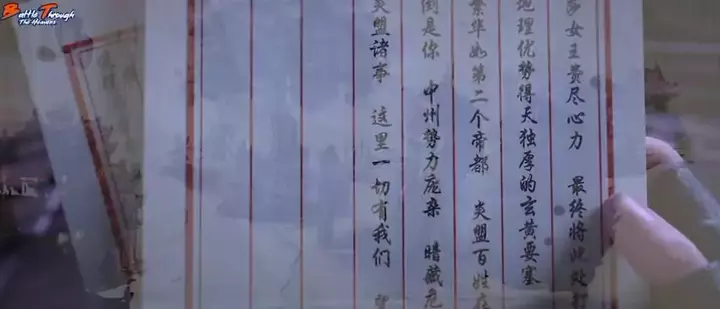 Battle Through
The Heavens
莎女王费尽心力 最终将此处打
地理优势得天独厚的玄黄要塞
繁华如第二个帝都 炎盟百姓在
倒是你 中州势力庞杂 暗藏危
炎盟诸事 这里一切有我们